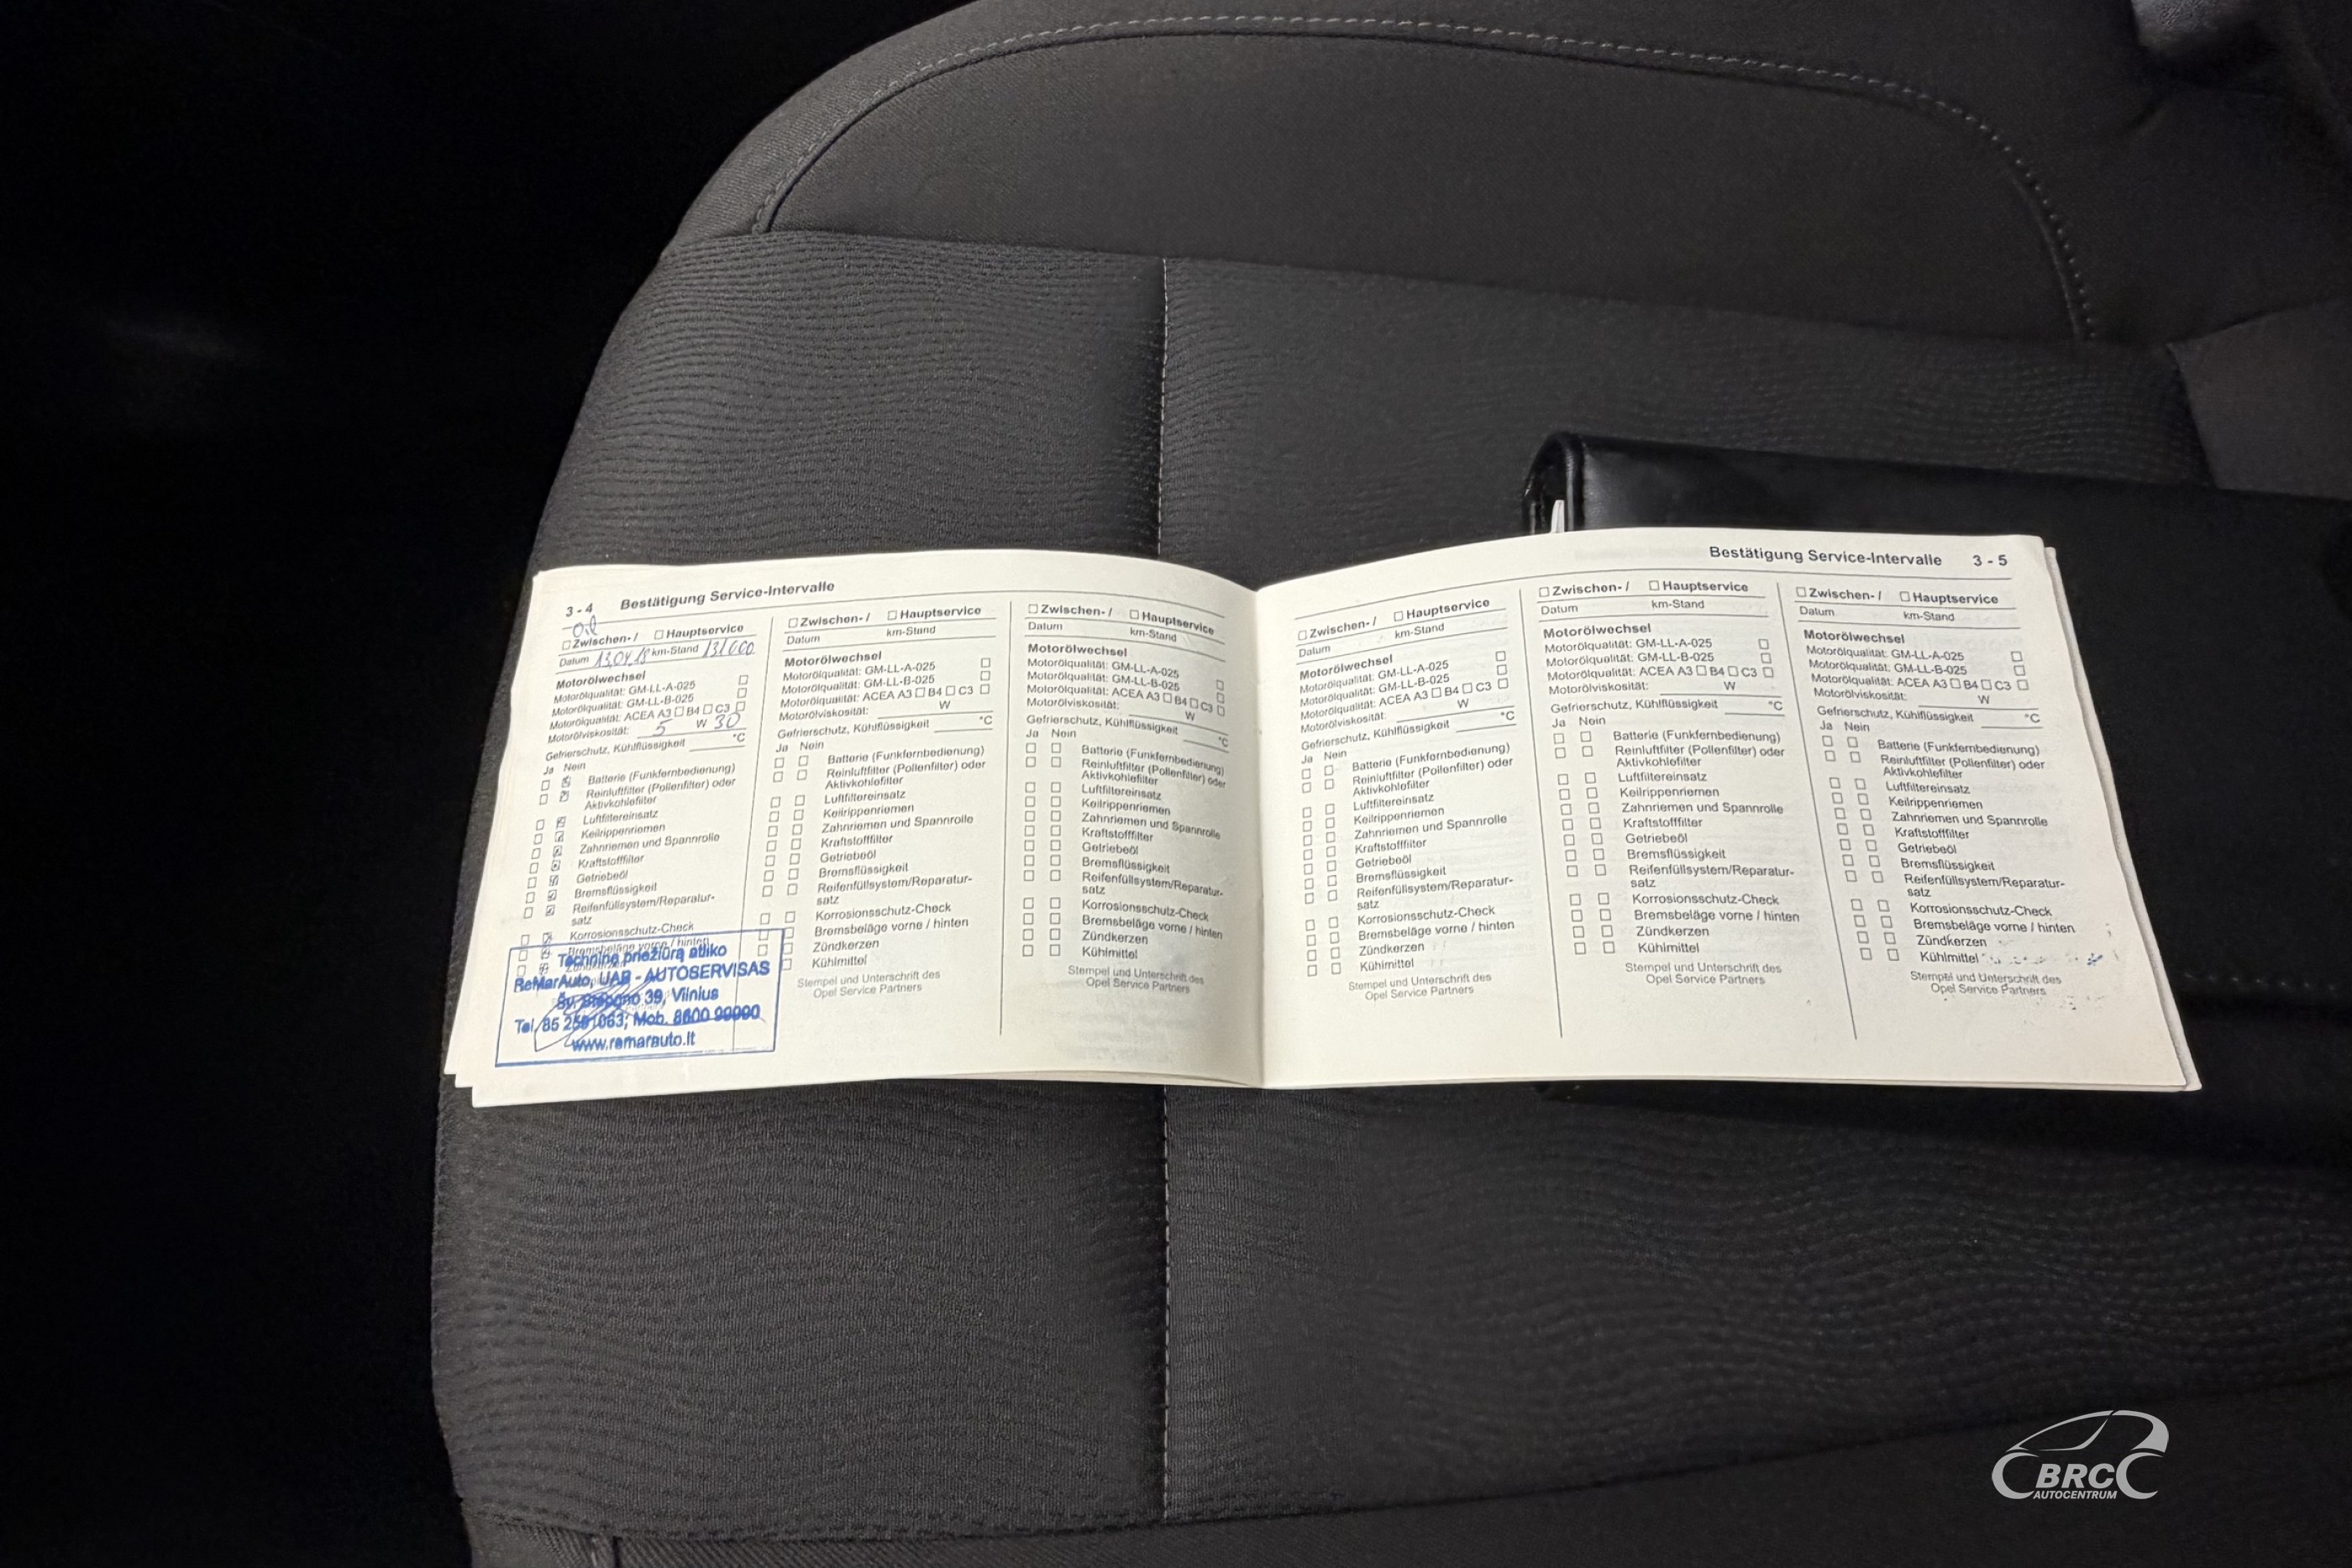 3 - 4 Bestätigung Service-Intervalle
Oil
☐ Zwischen- / ☐ Hauptservice
Datum 13.04.18 km-Stand 131000
Motorölwechsel
Motorölqualität: GM-LL-A-025 ☐
Motorölqualität: GM-LL-B-025 ☐
Motorölqualität: ACEA A3 ☐ B4 ☐ C3 ☐
Motorölviskosität: 5 W 30
Gefrierschutz, Kühlflüssigkeit °C
Ja Nein
Batterie (Funkfernbedienung)
Reinluftfilter (Pollenfilter) oder
Aktivkohlefilter
Luftfiltereinsatz
Keilrippenriemen
Zahnriemen und Spannrolle
Kraftstofffilter
Getriebeöl
Bremsflüssigkeit
Reifenfüllsystem/Reparatur-
satz
Korrosionsschutz-Check
Bremsbeläge vorne / hinten
Techninę priežiūrą atliko
ReMarAuto, UAB - AUTOSERVISAS
39, Vilnius
Mob. 8600 99090
www.remarauto.lt
☐ Zwischen- / ☐ Hauptservice
Datum km-Stand
Motorölwechsel
Motorölqualität: GM-LL-A-025 ☐
Motorölqualität: GM-LL-B-025 ☐
Motorölqualität: ACEA A3 ☐ B4 ☐ C3 ☐
Motorölviskosität: W
Gefrierschutz, Kühlflüssigkeit °C
Ja Nein
☐ ☐ Batterie (Funkfernbedienung)
☐ ☐ Reinluftfilter (Pollenfilter) oder
Aktivkohlefilter
☐ ☐ Luftfiltereinsatz
☐ ☐ Keilrippenriemen
☐ ☐ Zahnriemen und Spannrolle
☐ ☐ Kraftstofffilter
☐ ☐ Getriebeöl
☐ ☐ Bremsflüssigkeit
☐ ☐ Reifenfüllsystem/Reparatur-
satz
☐ ☐ Korrosionsschutz-Check
☐ ☐ Bremsbeläge vorne / hinten
☐ Zündkerzen
☐ Kühlmittel
Stempel und Unterschrift des
Opel Service Partners
☐ Zwischen- / ☐ Hauptservice
Datum km-Stand
Motorölwechsel
Motorölqualität: GM-LL-A-025 ☐
Motorölqualität: GM-LL-B-025 ☐
Motorölqualität: ACEA A3 ☐ B4 ☐ C3 ☐
Motorölviskosität: W
Gefrierschutz, Kühlflüssigkeit °C
Ja Nein
☐ ☐ Batterie (Funkfernbedienung)
☐ ☐ Reinluftfilter (Pollenfilter) oder
Aktivkohlefilter
☐ ☐ Luftfiltereinsatz
☐ ☐ Keilrippenriemen
☐ ☐ Zahnriemen und Spannrolle
☐ ☐ Kraftstofffilter
☐ ☐ Getriebeöl
☐ ☐ Bremsflüssigkeit
☐ ☐ Reifenfüllsystem/Reparatur-
satz
☐ ☐ Korrosionsschutz-Check
☐ ☐ Bremsbeläge vorne / hinten
☐ ☐ Zündkerzen
☐ ☐ Kühlmittel
Stempel und Unterschrift des
Opel Service Partners
Bestätigung Service-Intervalle 3 - 5
☐ Zwischen- / ☐ Hauptservice
Datum km-Stand
Motorölwechsel
Motorölqualität: GM-LL-A-025 ☐
Motorölqualität: GM-LL-B-025
Motorölqualität: ACEA A3 ☐ B4 ☐ C3 ☐
Motorölviskosität: W
Gefrierschutz, Kühlflüssigkeit °C
Ja Nein
☐ ☐ Batterie (Funkfernbedienung)
☐ ☐ Reinluftfilter (Pollenfilter) oder
Aktivkohlefilter
☐ ☐ Luftfiltereinsatz
☐ ☐ Keilrippenriemen
☐ ☐ Zahnriemen und Spannrolle
☐ ☐ Kraftstofffilter
☐ ☐ Getriebeöl
☐ ☐ Bremsflüssigkeit
☐ ☐ Reifenfüllsystem/Reparatur-
satz
☐ ☐ Korrosionsschutz-Check
☐ ☐ Bremsbeläge vorne / hinten
☐ ☐ Zündkerzen
☐ ☐ Kühlmittel
Stempel und Unterschrift des
Opel Service Partners
☐ Zwischen- / ☐ Hauptservice
Datum km-Stand
Motorölwechsel
Motorölqualität: GM-LL-A-025 ☐
Motorölqualität: GM-LL-B-025 ☐
Motorölqualität: ACEA A3 ☐ B4 ☐ C3 ☐
Motorölviskosität: W
Gefrierschutz, Kühlflüssigkeit °C
Ja Nein
☐ ☐ Batterie (Funkfernbedienung)
☐ ☐ Reinluftfilter (Pollenfilter) oder
Aktivkohlefilter
☐ ☐ Luftfiltereinsatz
☐ ☐ Keilrippenriemen
☐ ☐ Zahnriemen und Spannrolle
☐ ☐ Kraftstofffilter
☐ ☐ Getriebeöl
☐ ☐ Bremsflüssigkeit
☐ ☐ Reifenfüllsystem/Reparatur-
satz
☐ ☐ Korrosionsschutz-Check
☐ ☐ Bremsbeläge vorne / hinten
☐ ☐ Zündkerzen
☐ ☐ Kühlmittel
Stempel und Unterschrift des
Opel Service Partners
☐ Zwischen- / ☐ Hauptservice
Datum km-Stand
Motorölwechsel
Motorölqualität: GM-LL-A-025 ☐
Motorölqualität: GM-LL-B-025 ☐
Motorölqualität: ACEA A3 ☐ B4 ☐ C3 ☐
Motorölviskosität: W
Gefrierschutz, Kühlflüssigkeit °C
Ja Nein
☐ ☐ Batterie (Funkfernbedienung)
☐ ☐ Reinluftfilter (Pollenfilter) oder
Aktivkohlefilter
☐ ☐ Luftfiltereinsatz
☐ ☐ Keilrippenriemen
☐ ☐ Zahnriemen und Spannrolle
☐ ☐ Kraftstofffilter
☐ ☐ Getriebeöl
☐ ☐ Bremsflüssigkeit
☐ ☐ Reifenfüllsystem/Reparatur-
satz
☐ ☐ Korrosionsschutz-Check
☐ ☐ Bremsbeläge vorne / hinten
☐ ☐ Zündkerzen
☐ ☐ Kühlmittel
Stempel und Unterschrift des
Opel Service Partners
BRC
AUTOCENTRUM